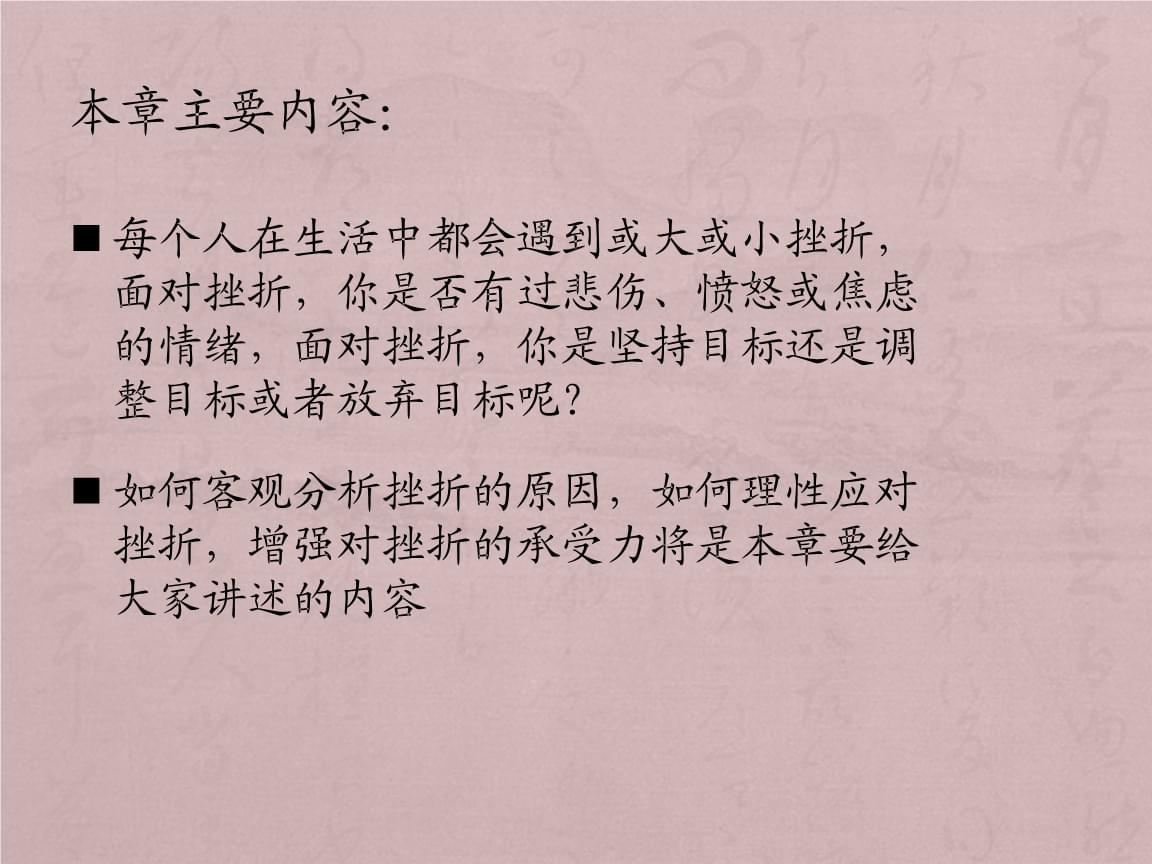 本章主要内容：
■ 每个人在生活中都会遇到或大或小挫折，
面对挫折，你是否有过悲伤、愤怒或焦虑
的情绪，面对挫折，你是坚持目标还是调
整目标或者放弃目标呢？
■ 如何客观分析挫折的原因，如何理性应对
挫折，增强对挫折的承受力将是本章要给
大家讲述的内容